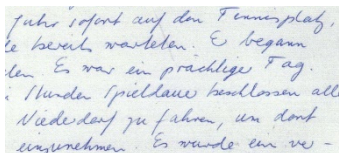 fuhr sofort auf den Tennisplatz,
bereits warteten. E begann
Es war ein prachtige Tag.
Stunden Spieldaue beschlossen all
Niederdorf zu fahren, um dort
einzunehmen. Es wurde ein ve-